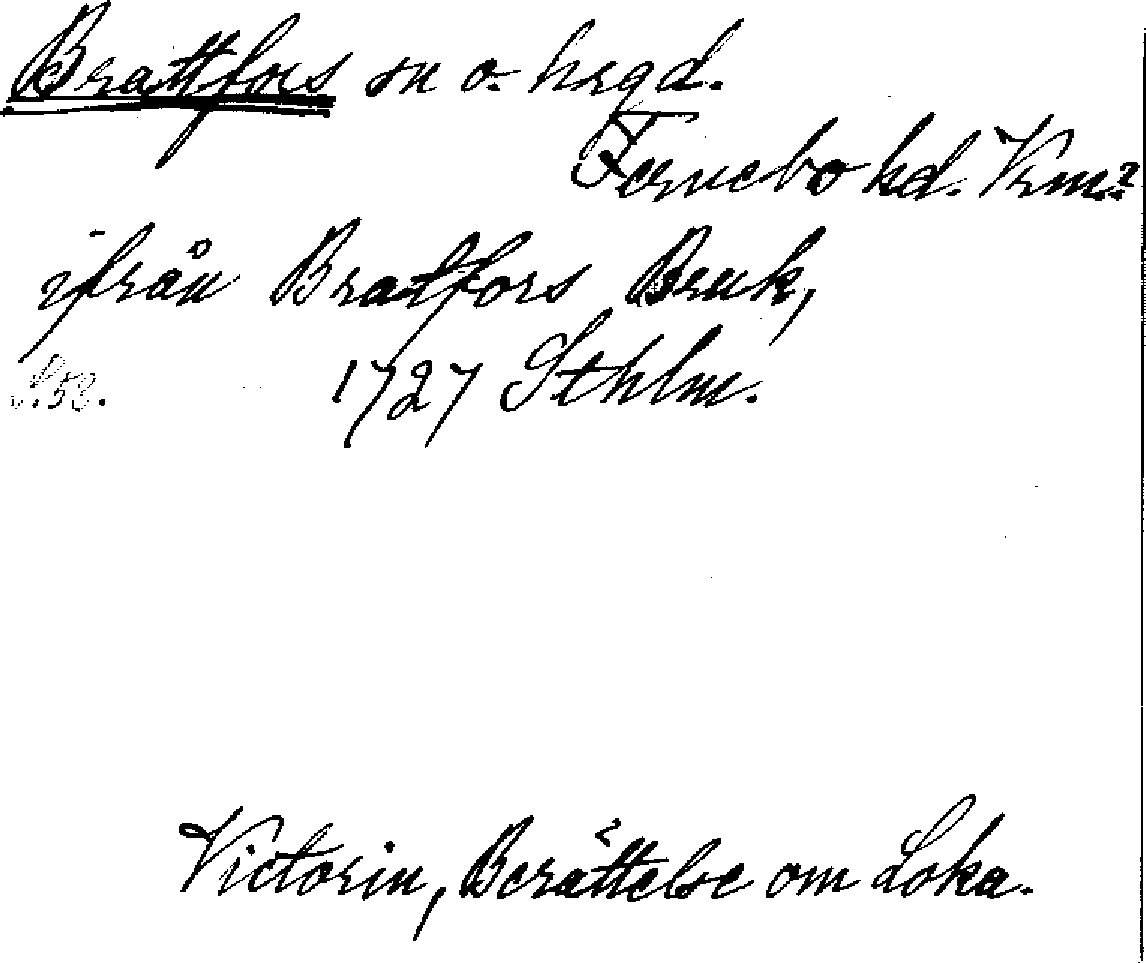 Brattfors sn o. hrgd.
Fernebo hd. Vrm?
ifrån Bratfors Bruk,
S. 52. 1727 Sthlm.
Victorin, Berättelse om Loka.